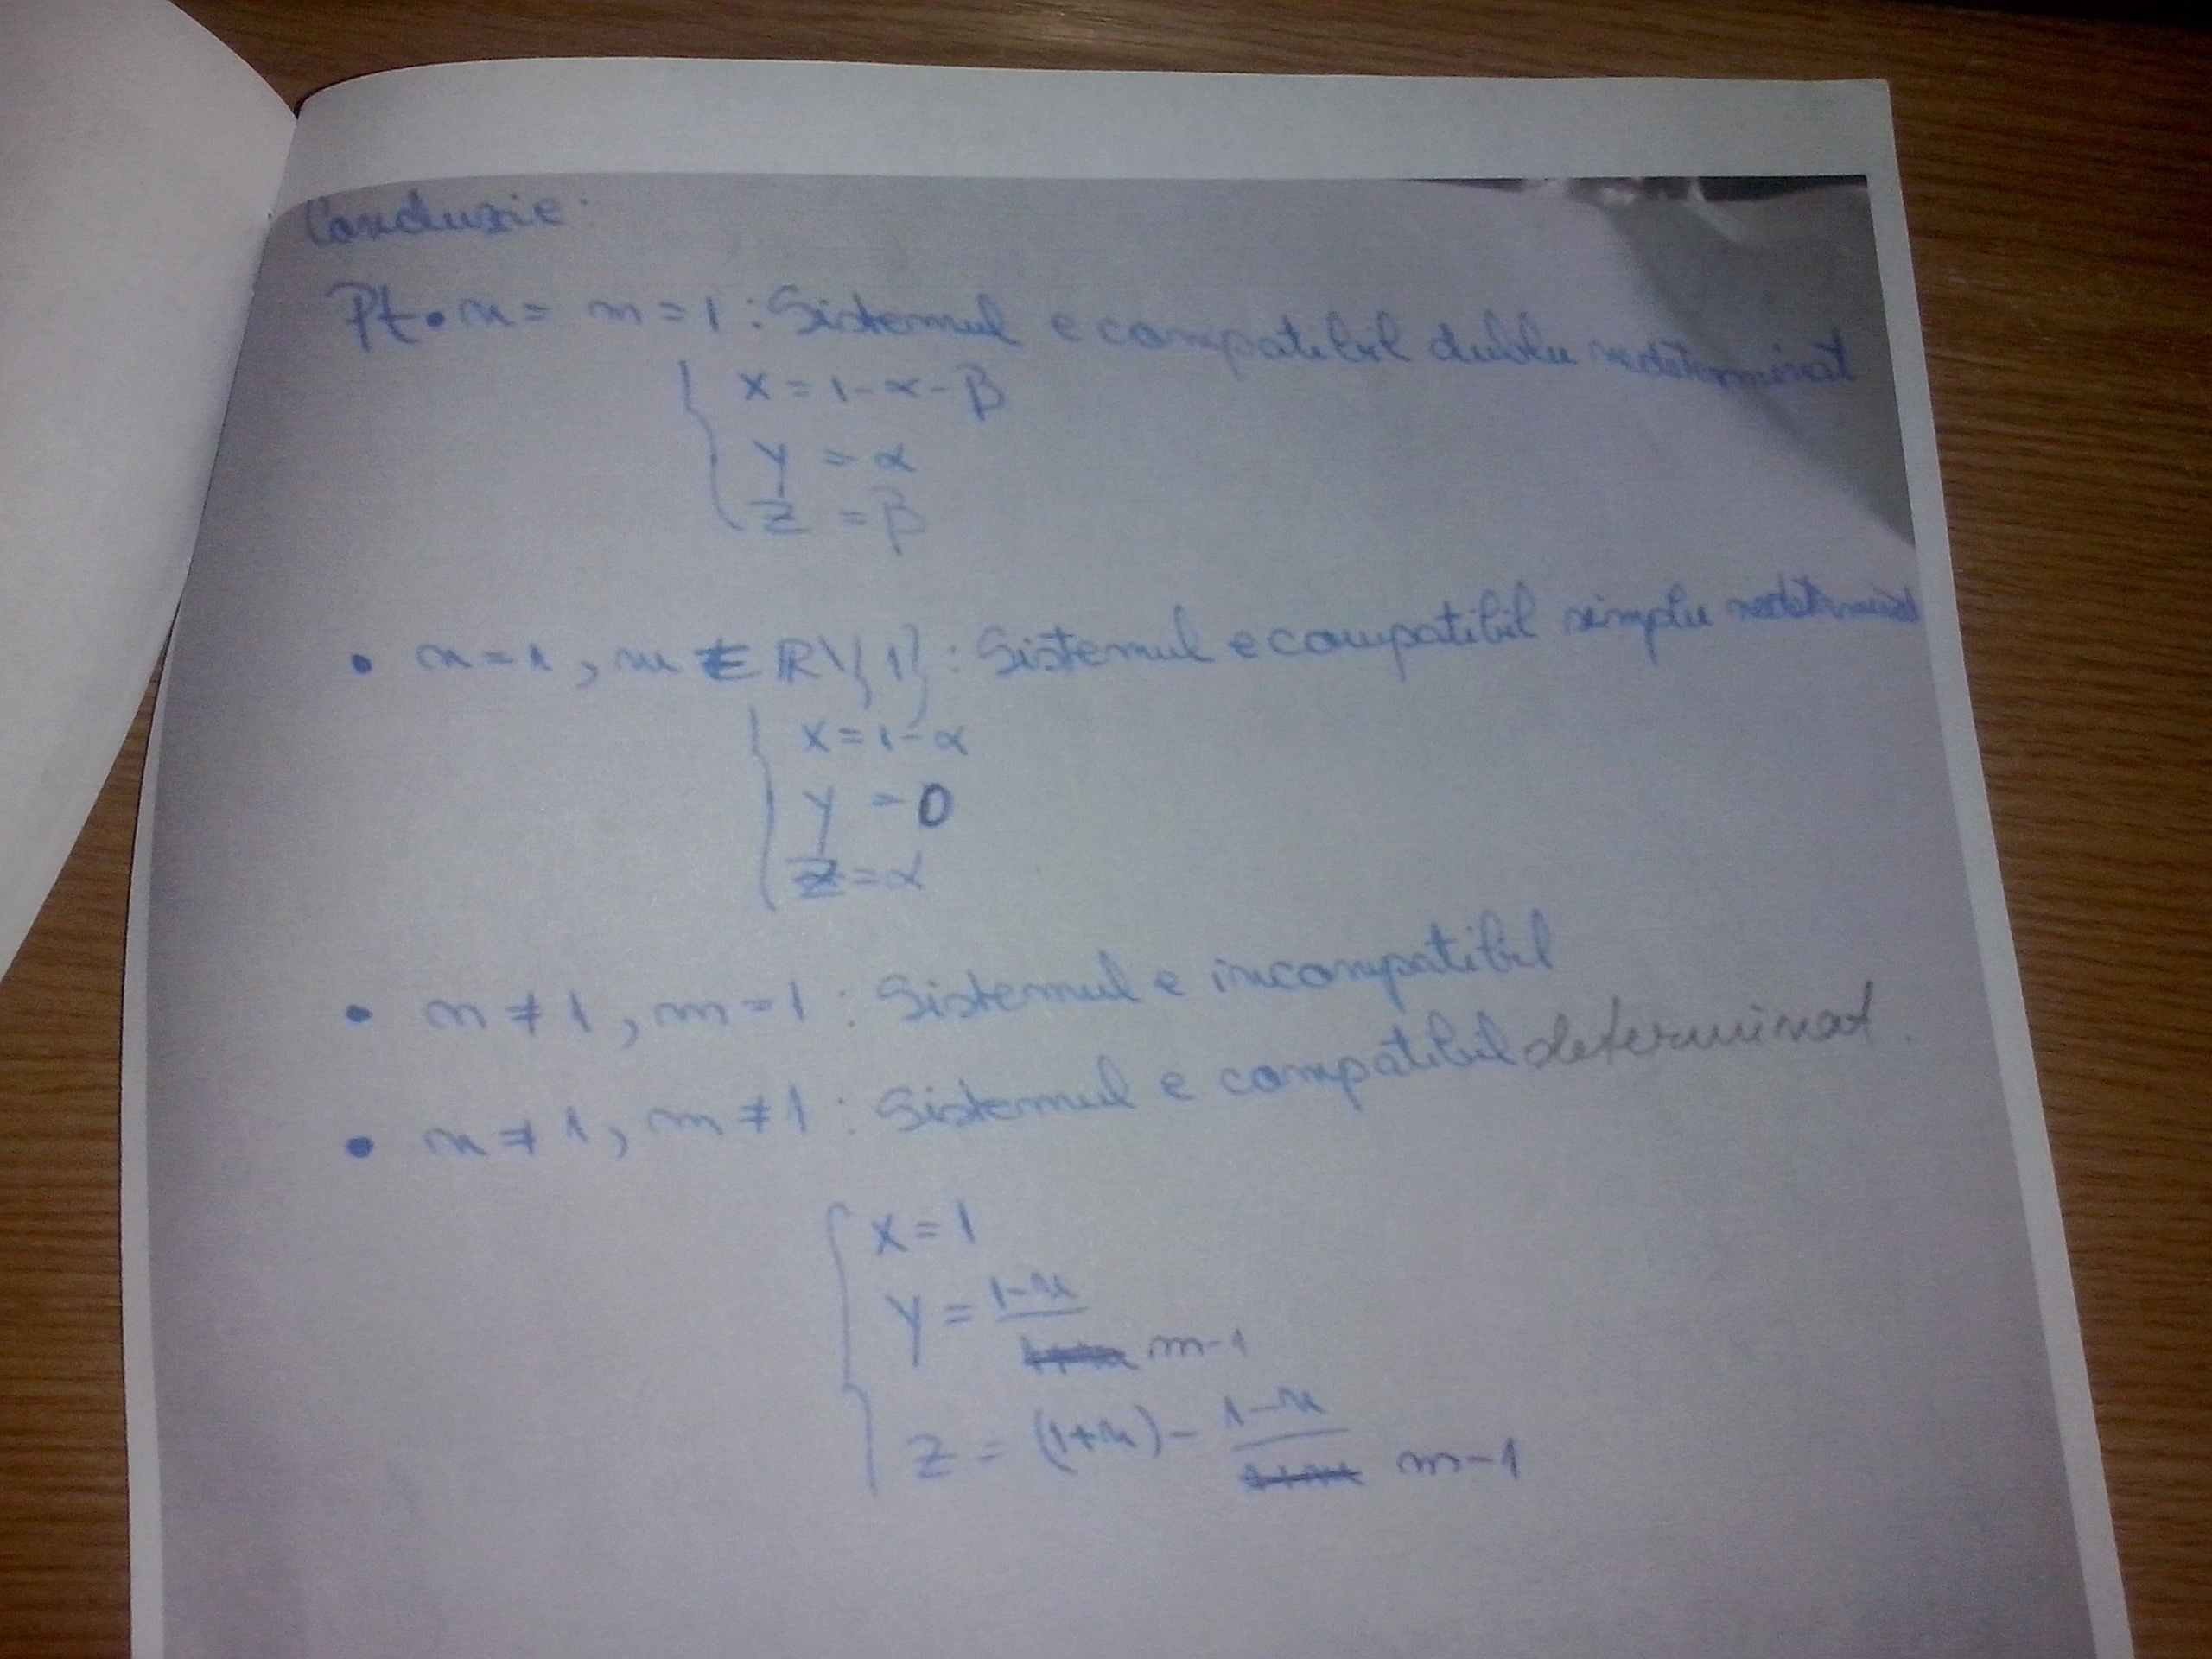 Concluzie:
Pt • n = m = 1 : Sistemul e compatibil dublu nedeterminat
x = 1 - α - β
y = α
z = β
• n = 1 , m ∈ ℝ \ {1} : Sistemul e compatibil simplu nedeterminat
x = 1 - α
y = 0
z = α
• n ≠ 1 , m = 1 : Sistemul e incompatibil
• n ≠ 1 , m ≠ 1 : Sistemul e compatibil determinat.
x = 1
y = 1-n / m-1
z = (1+n) - 1-n / m-1